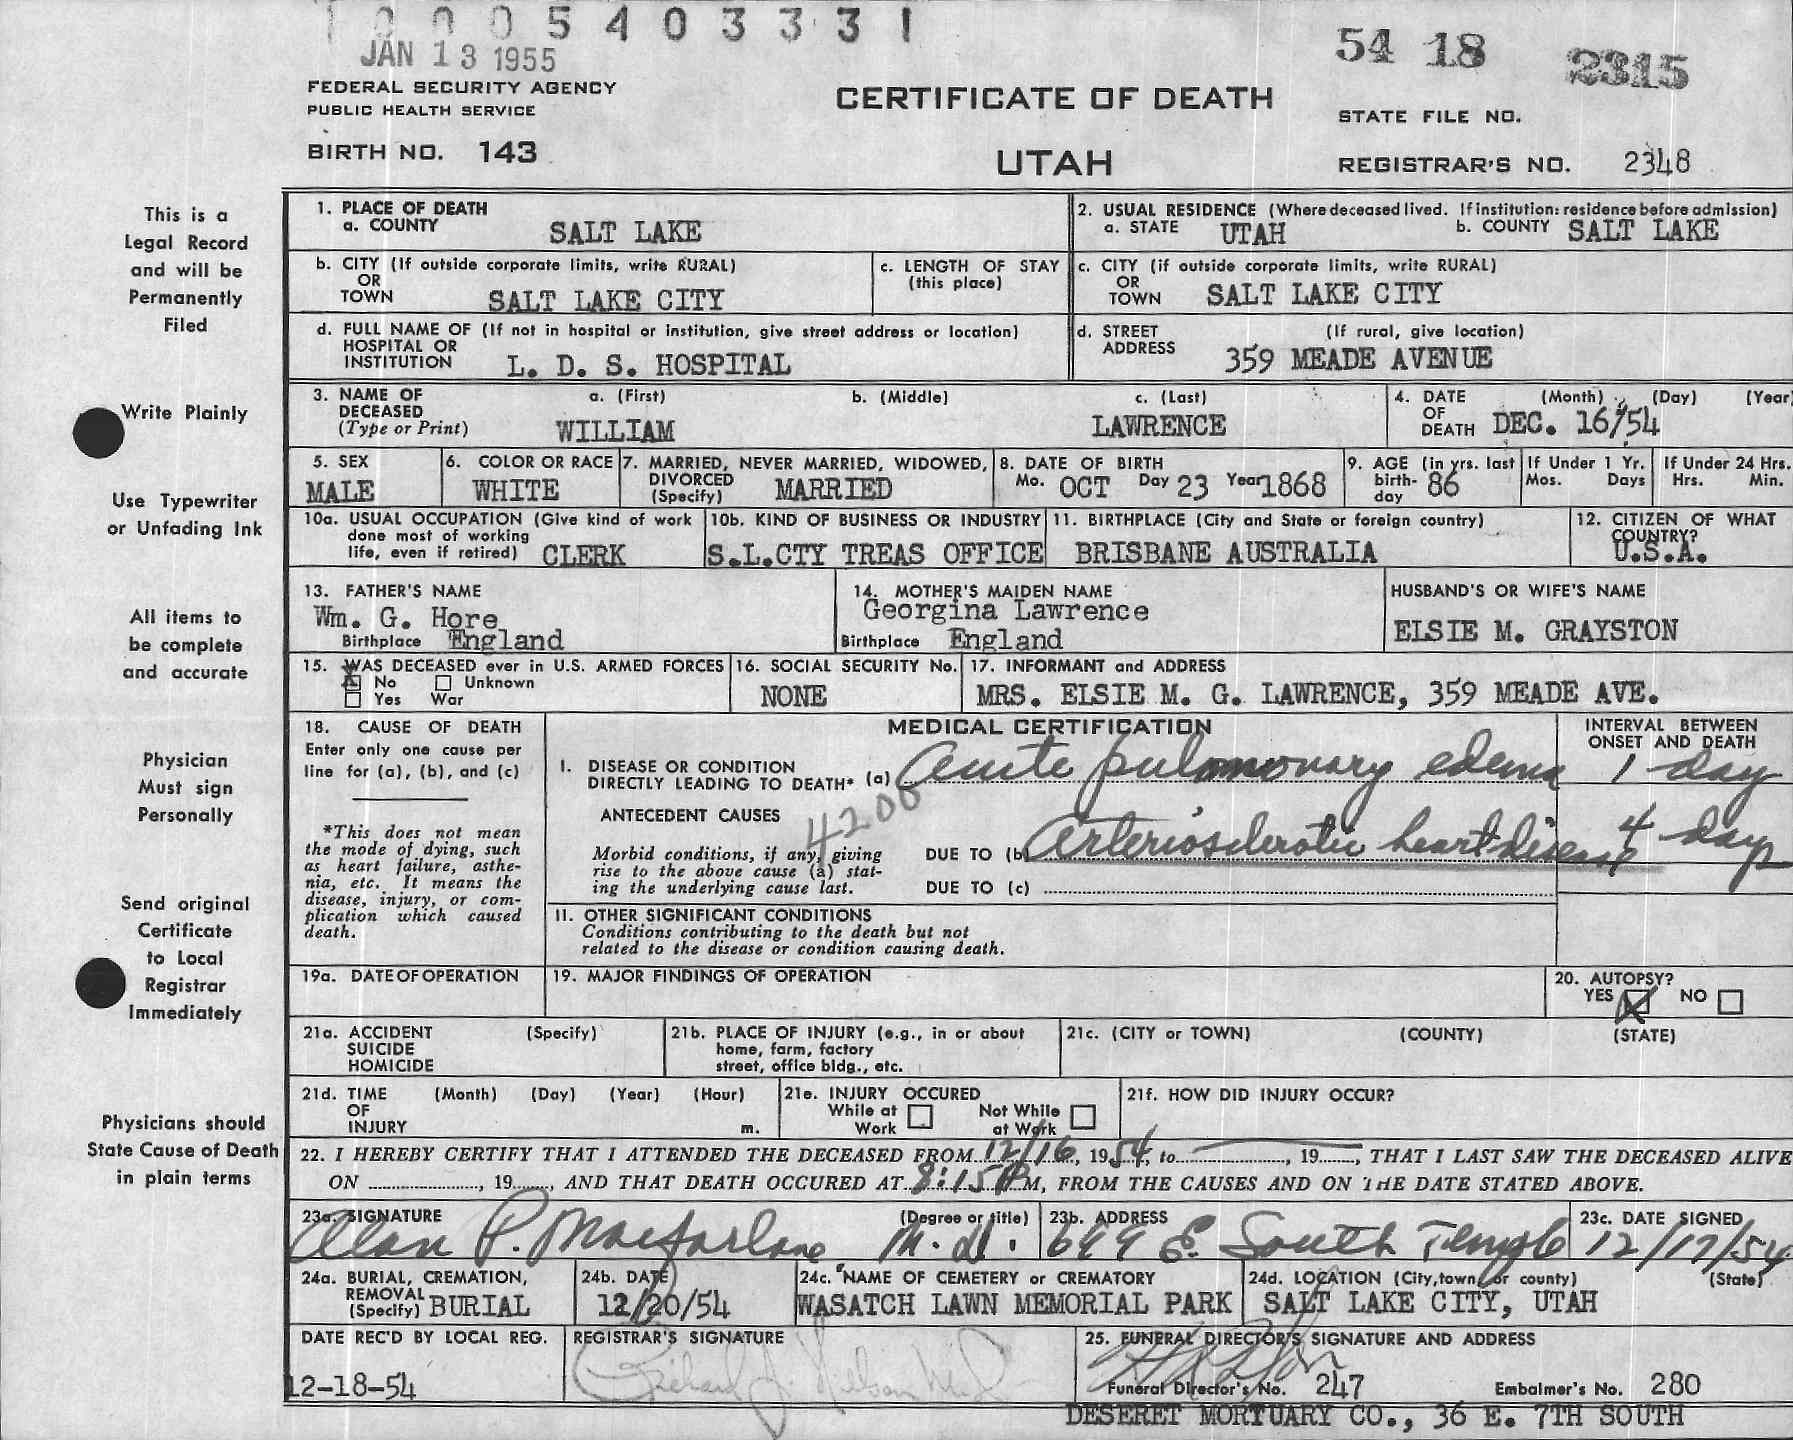 1 0 0 0 5 4 0 3 3 3 1
JAN 13 1955
54 18 2315
FEDERAL SECURITY AGENCY
PUBLIC HEALTH SERVICE
CERTIFICATE OF DEATH
STATE FILE NO.
BIRTH NO. 143
UTAH
REGISTRAR'S NO. 2348
This is a
Legal Record
and will be
Permanently
Filed
Write Plainly
Use Typewriter
or Unfading Ink
All items to
be complete
and accurate
Physician
Must sign
Personally
Send original
Certificate
to Local
Registrar
Immediately
Physicians should
State Cause of Death
in plain terms
1. PLACE OF DEATH
a. COUNTY SALT LAKE
2. USUAL RESIDENCE (Where deceased lived. If institution: residence before admission)
a. STATE UTAH b. COUNTY SALT LAKE
b. CITY (If outside corporate limits, write RURAL)
OR
TOWN SALT LAKE CITY
c. LENGTH OF STAY
(this place)
c. CITY (if outside corporate limits, write RURAL)
OR
TOWN SALT LAKE CITY
d. FULL NAME OF (If not in hospital or institution, give street address or location)
HOSPITAL OR
INSTITUTION L. D. S. HOSPITAL
d. STREET (If rural, give location)
ADDRESS 359 MEADE AVENUE
3. NAME OF a. (First) b. (Middle) c. (Last)
DECEASED
(Type or Print) WILLIAM LAWRENCE
4. DATE (Month) (Day) (Year)
OF
DEATH DEC. 16/54
5. SEX
MALE
6. COLOR OR RACE
WHITE
7. MARRIED, NEVER MARRIED, WIDOWED,
DIVORCED
(Specify) MARRIED
8. DATE OF BIRTH
Mo. OCT Day 23 Year 1868
9. AGE (in yrs. last
birth-
day 86
If Under 1 Yr.
Mos. Days
If Under 24 Hrs.
Hrs. Min.
10a. USUAL OCCUPATION (Give kind of work
done most of working
life, even if retired) CLERK
10b. KIND OF BUSINESS OR INDUSTRY
S.L.CTY TREAS OFFICE
11. BIRTHPLACE (City and State or foreign country)
BRISBANE AUSTRALIA
12. CITIZEN OF WHAT
COUNTRY?
U.S.A.
13. FATHER'S NAME
Wm. G. Hore
Birthplace England
14. MOTHER'S MAIDEN NAME
Georgina Lawrence
Birthplace England
HUSBAND'S OR WIFE'S NAME
ELSIE M. GRAYSTON
15. WAS DECEASED ever in U.S. ARMED FORCES
X No Unknown
Yes War
16. SOCIAL SECURITY No.
NONE
17. INFORMANT and ADDRESS
MRS. ELSIE M. G. LAWRENCE, 359 MEADE AVE.
18. CAUSE OF DEATH
Enter only one cause per
line for (a), (b), and (c)
*This does not mean
the mode of dying, such
as heart failure, asthe-
nia, etc. It means the
disease, injury, or com-
plication which caused
death.
MEDICAL CERTIFICATION
INTERVAL BETWEEN
ONSET AND DEATH
I. DISEASE OR CONDITION
DIRECTLY LEADING TO DEATH* (a) Acute pulmonary edema 1 day
4200
ANTECEDENT CAUSES
Morbid conditions, if any, giving
rise to the above cause (a) stat-
ing the underlying cause last.
DUE TO (b) Arteriosclerotic heart disease 4 day
DUE TO (c)
II. OTHER SIGNIFICANT CONDITIONS
Conditions contributing to the death but not
related to the disease or condition causing death.
19a. DATE OF OPERATION
19. MAJOR FINDINGS OF OPERATION
20. AUTOPSY?
YES X NO
21a. ACCIDENT (Specify)
SUICIDE
HOMICIDE
21b. PLACE OF INJURY (e.g., in or about
home, farm, factory
street, office bldg., etc.
21c. (CITY or TOWN) (COUNTY) (STATE)
21d. TIME (Month) (Day) (Year) (Hour)
OF
INJURY m.
21e. INJURY OCCURED
While at Not While
Work at Work
21f. HOW DID INJURY OCCUR?
22. I HEREBY CERTIFY THAT I ATTENDED THE DECEASED FROM 12/16, 1954, to , 19 , THAT I LAST SAW THE DECEASED ALIVE
ON , 19 , AND THAT DEATH OCCURED AT 8:15 P M, FROM THE CAUSES AND ON THE DATE STATED ABOVE.
23a. SIGNATURE (Degree or title)
Alan P. Macfarlane M.D.
23b. ADDRESS
699 E. South Temple
23c. DATE SIGNED
12/17/54
24a. BURIAL, CREMATION,
REMOVAL
(Specify) BURIAL
24b. DATE
12/20/54
24c. NAME OF CEMETERY or CREMATORY
WASATCH LAWN MEMORIAL PARK
24d. LOCATION (City, town, or county) (State)
SALT LAKE CITY, UTAH
DATE REC'D BY LOCAL REG.
12-18-54
REGISTRAR'S SIGNATURE
Richard J. Nelson M.D.
25. FUNERAL DIRECTOR'S SIGNATURE AND ADDRESS
Funeral Director's No. 247 Embalmer's No. 280
DESERET MORTUARY CO., 36 E. 7TH SOUTH